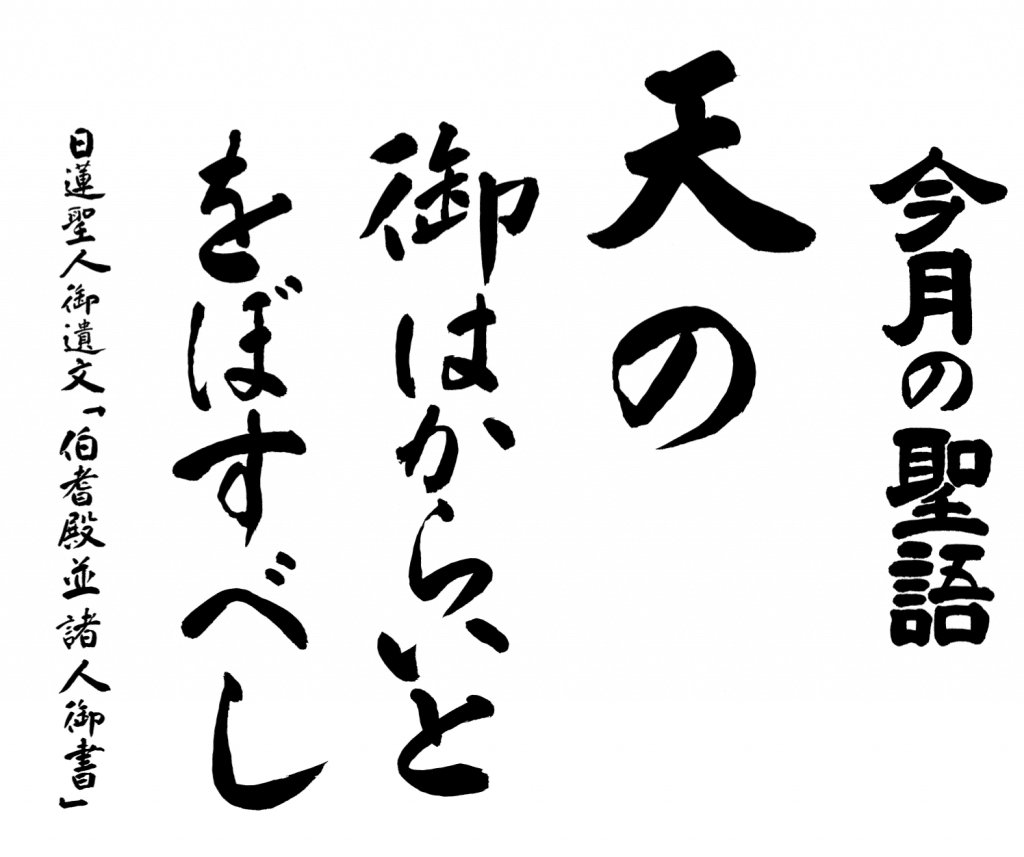 今月の聖語
天の
御はからいと
をぼすべし
日蓮聖人御遺文「伯耆殿並諸人御書」